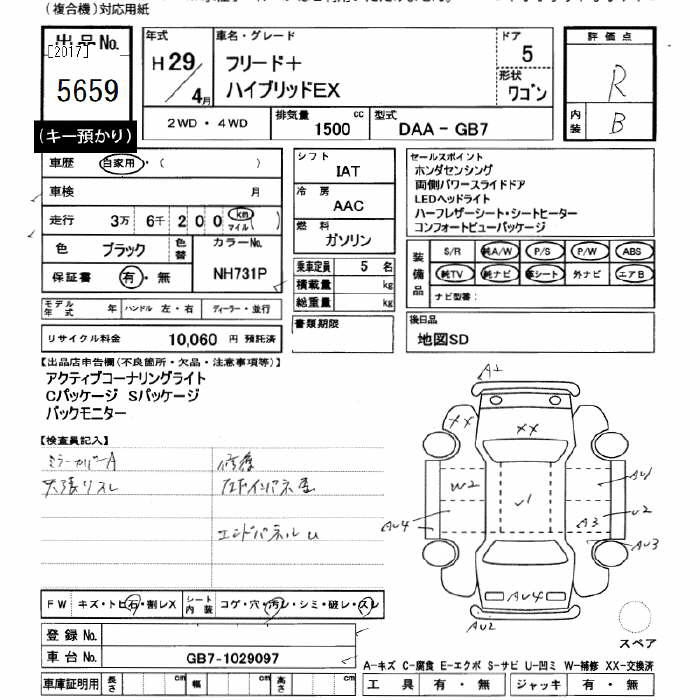 (複合機)対応用紙
出品No.
[2017]
5659
(キー預かり)
年式
H29/4月
車名・グレード
フリード＋
ハイブリッドEX
ドア
5
形状
ワゴン
2WD・4WD
排気量
1500 cc
型式
DAA-GB7
評価点
R
内装
B
車歴 自家用・( )
車検 月
走行 3万 6千 200 (km マイル)
色 ブラック 色替
カラーNo.
NH731P
保証書 有・無
モデル年式 年 ハンドル 左・右 ディーラー・並行
リサイクル料金 10,060 円 預託済
シフト
IAT
冷房
AAC
燃料
ガソリン
乗車定員 5 名
積載量 kg
総重量 kg
書類期限
セールスポイント
ホンダセンシング
両側パワースライドドア
LEDヘッドライト
ハーフレザーシート・シートヒーター
コンフォートビューパッケージ
装備品
S/R 純A/W P/S P/W ABS
純TV 純ナビ 革シート 外ナビ エアB
ナビ型番：
後日品
地図SD
【出品店申告欄(不良箇所・欠品・注意事項等)】
アクティブコーナリングライト
Cパッケージ Sパッケージ
バックモニター
【検査員記入】
ミラーカバーA
天張リスレ
修復
エンドパネルU
A1
XX
XX
W2
U1
AU1
U2
A3
AU4
AU3
AU4
AU2
スペア
FW キズ・トビ石・割レX
シート内装 コゲ・穴・汚レ・シミ・破レ・スレ
登録No.
車台No. GB7-1029097
車庫証明用 長さ cm 幅 cm 高さ cm
A-キズ C-腐食 E-エクボ S-サビ U-凹ミ W-補修 XX-交換済
工具 有・無 ジャッキ 有・無